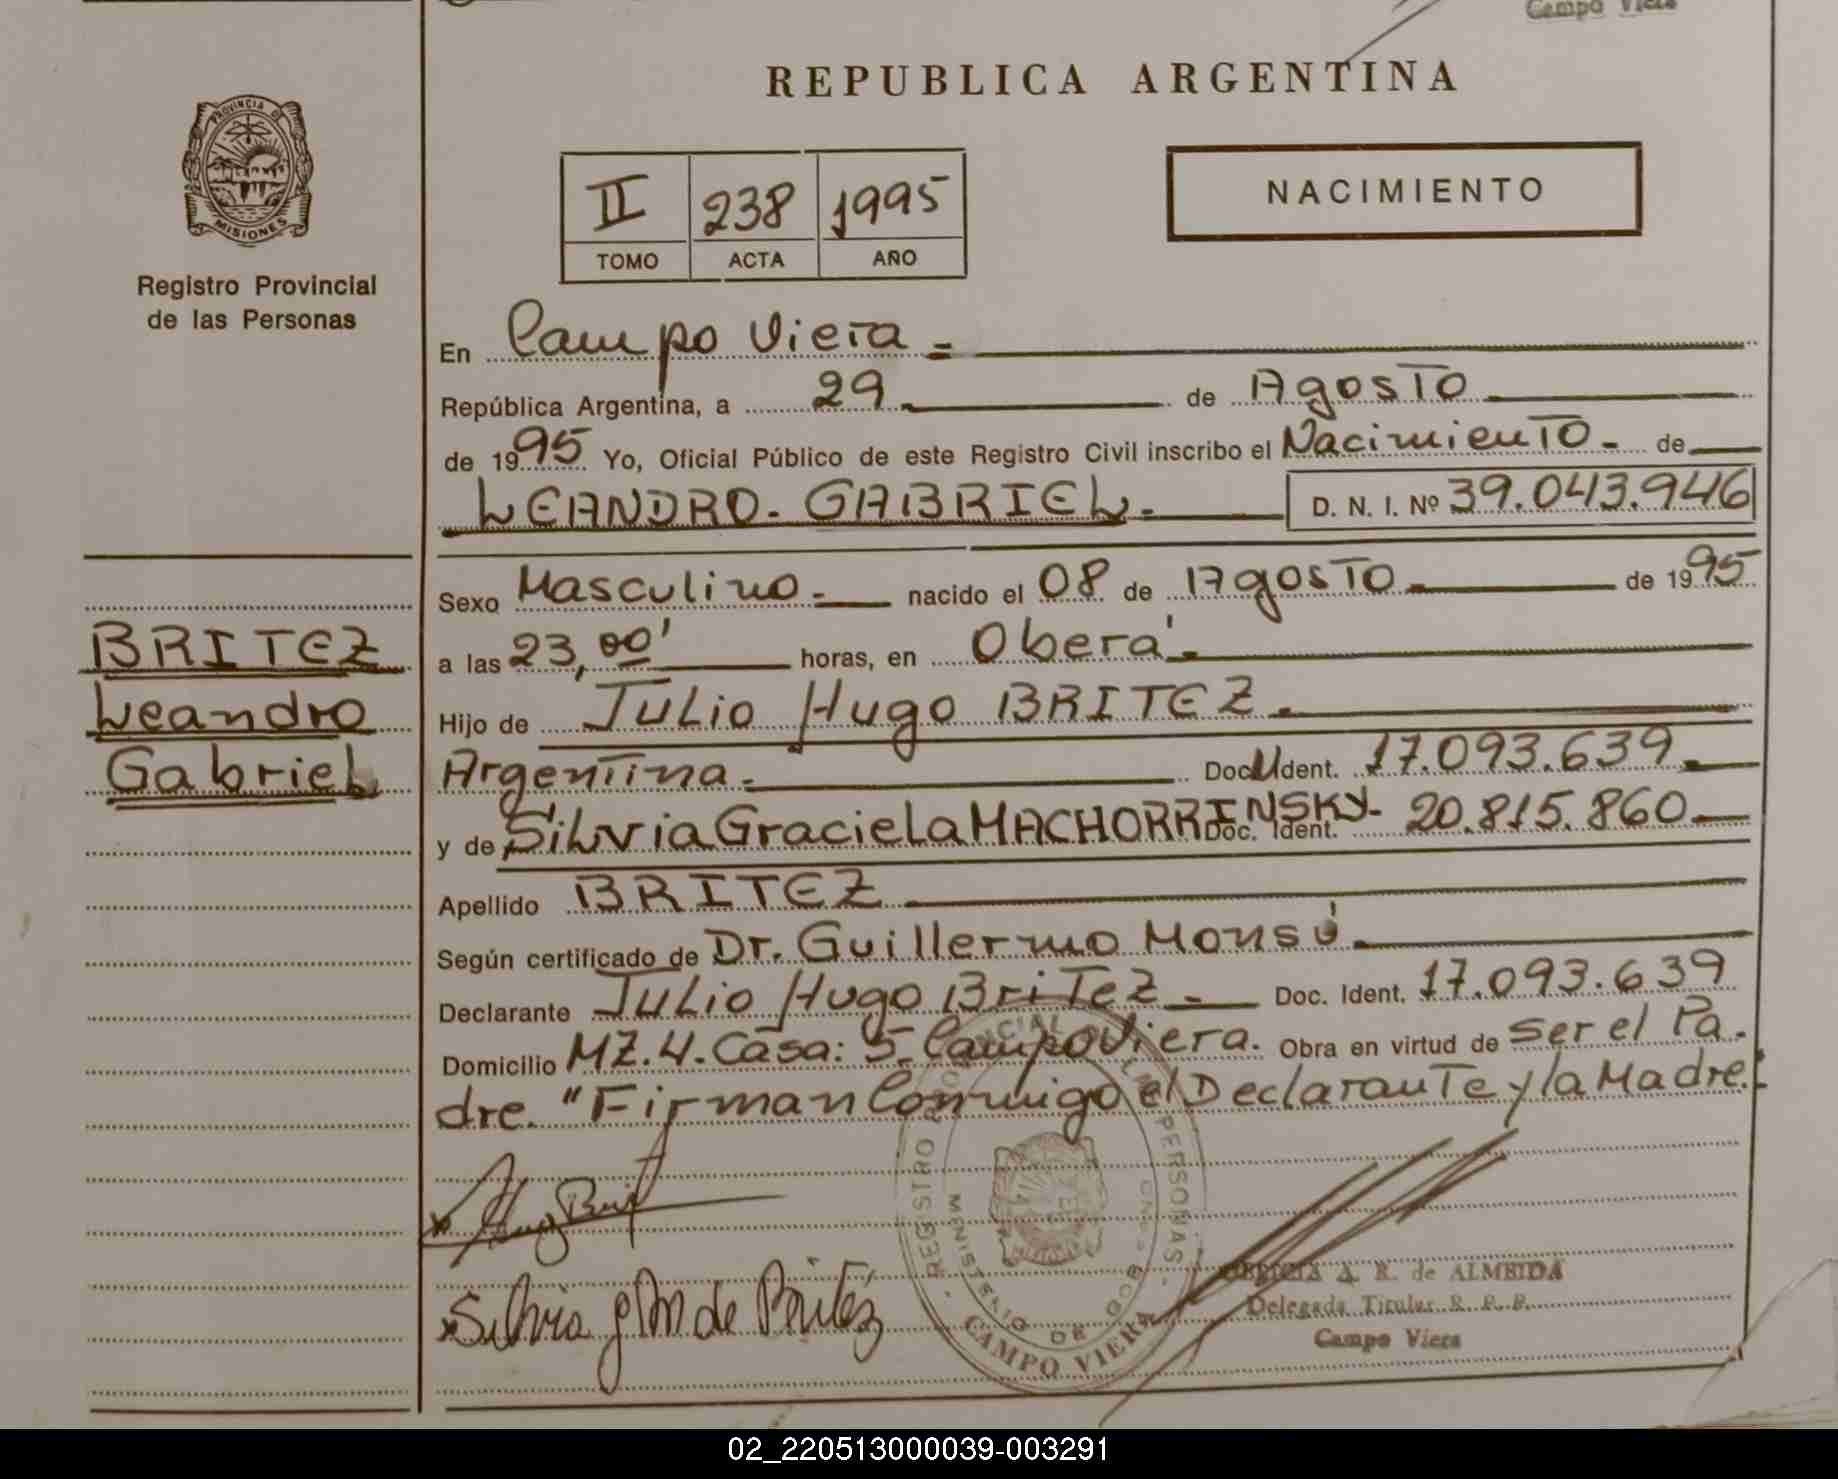 Campo Viera
REPUBLICA ARGENTINA
PROVINCIA DE
MISIONES
Registro Provincial
de las Personas
II 238 1995
TOMO ACTA AÑO
NACIMIENTO
En Campo Viera.
República Argentina, a 29 de Agosto
de 1995 Yo, Oficial Público de este Registro Civil inscribo el Nacimiento. de
LEANDRO. GABRIEL. D. N. I. Nº 39.043.946
Sexo Masculino. nacido el 08 de Agosto. de 1995
BRITEZ
Leandro
Gabriel
a las 23,00' horas, en Oberá.
Hijo de Julio Hugo BRITEZ.
Argentina. Doc. Ident. 17.093.639.
y de Silvia Graciela MACHORRINSKY- Doc. Ident. 20.815.860.
Apellido BRITEZ
Según certificado de Dr. Guillermo Monsú.
Declarante Julio Hugo Britez. Doc. Ident. 17.093.639
Domicilio MZ.4. Casa: 5. Campo Viera. Obra en virtud de ser el Pa-
dre. "Firman Conmigo el Declarante y la Madre.
Silvia g M de Britéz
REGISTRO PROVINCIAL DE LAS PERSONAS
MINISTERIO DE GOB
CAMPO VIERA
A. R. de ALMEIDA
Delegada Titular R. P. P.
Campo Viera
02_220513000039-003291